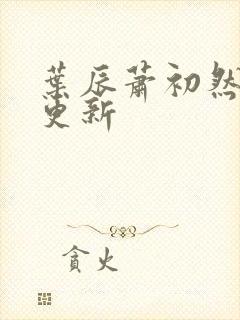 葉辰蕭初然
更新
貪火